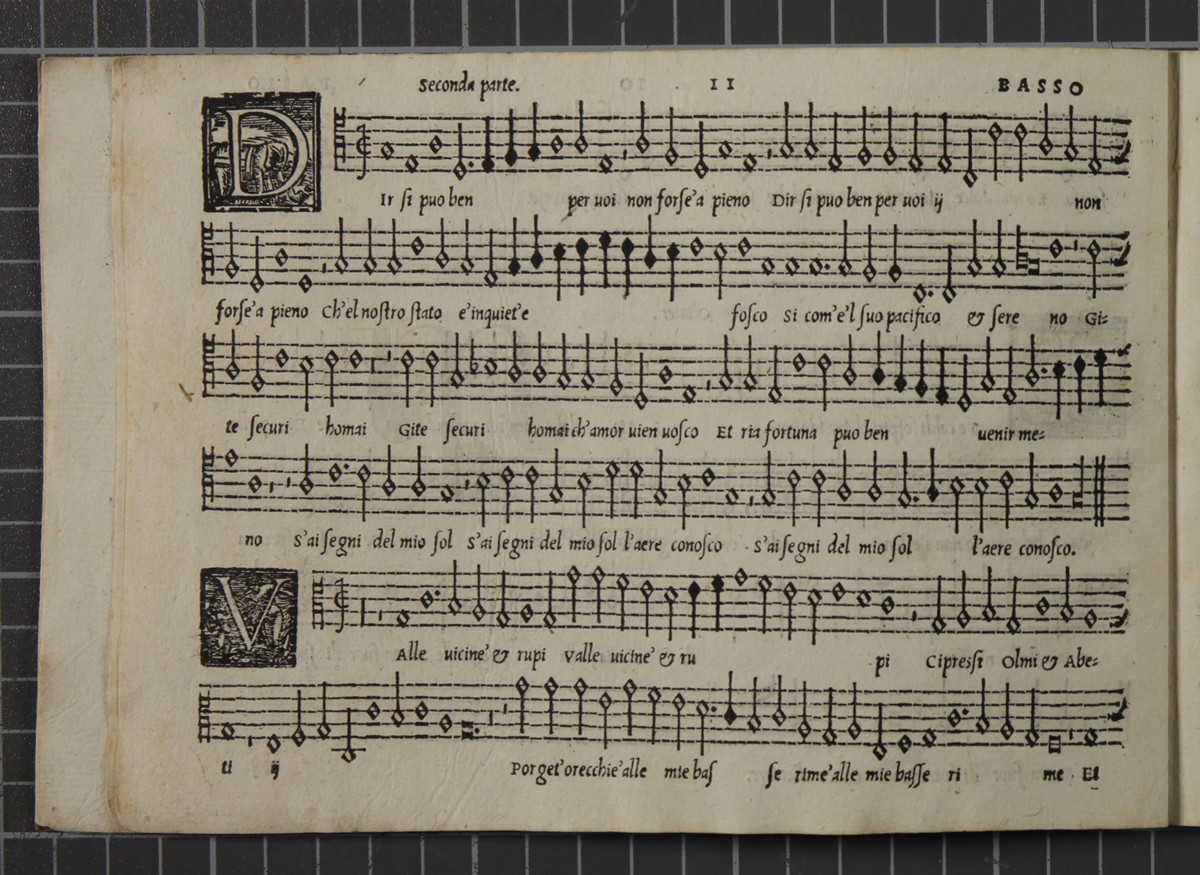 Seconda parte. 11 BASSO
DIr si puo ben per uoi non forse'a pieno Dir si puo ben per uoi ij non
forse'a pieno Ch'el nostro stato e'inquiet'e fosco Si com'e'l suo pacifico & sere no Gi=
te securi homai Gite securi homai ch'amor uien uosco Et ria fortuna puo ben uenir me=
no S'ai segni del mio sol s'ai segni del mio sol l'aere conosco s'ai segni del mio sol l'aere conosco.
VAlle uicine' & rupi Valle uicine' & ru pi Cipressi Olmi & Abe=
ti ij Porget'orecchie'alle mie bas se rime'alle mie basse ri me Et